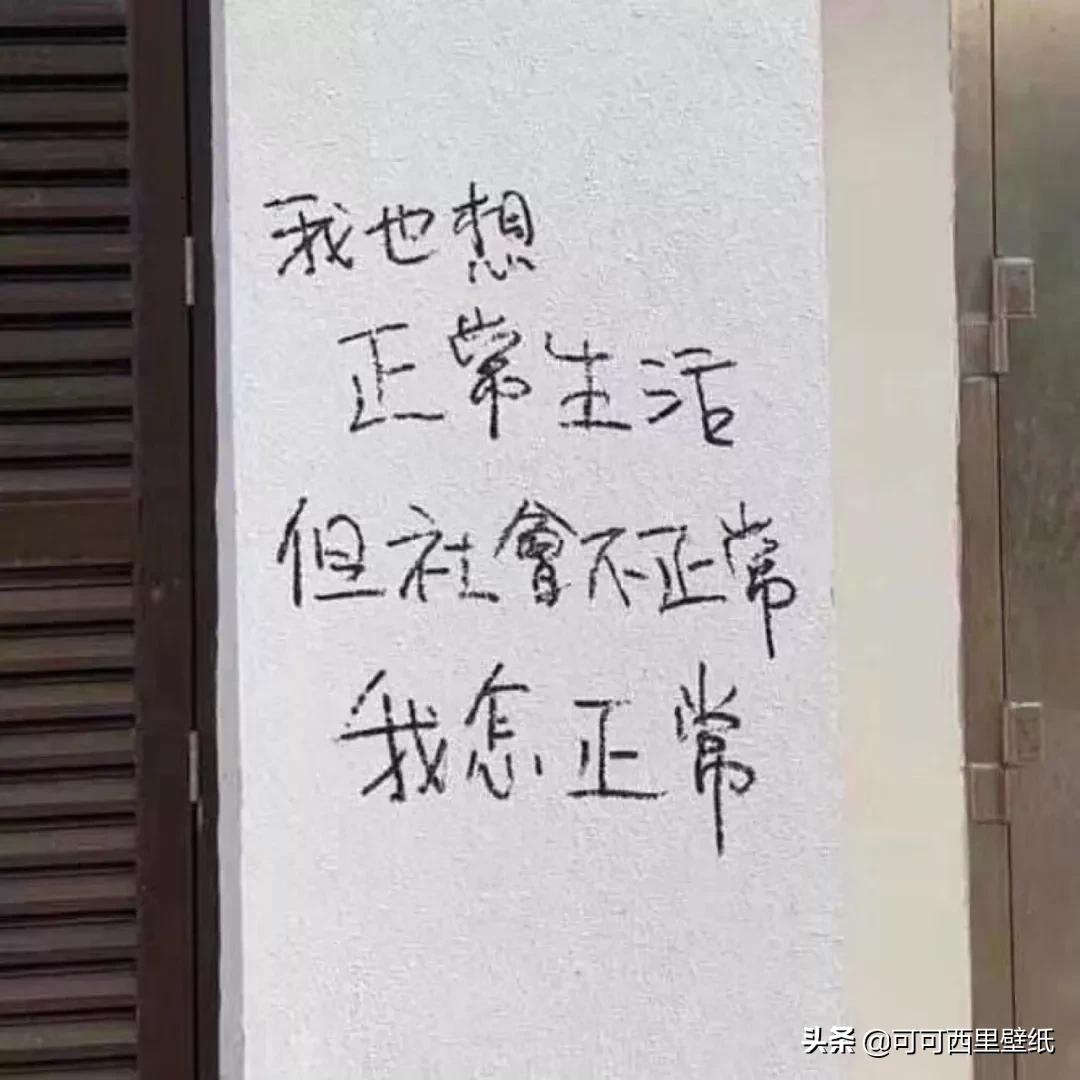 我也想
正常生活
但社會不正常
我怎正常
头条 @可可西里壁纸